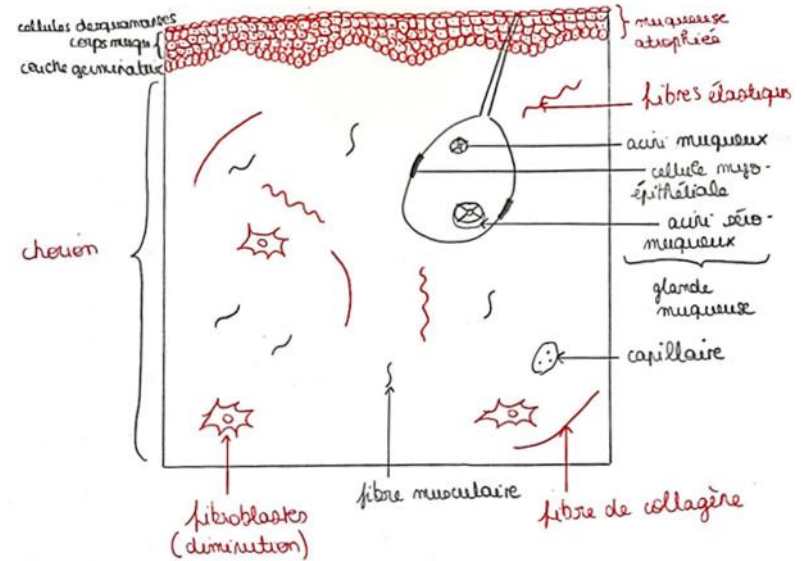 cellules desquamantes
corps muqu
couche germinative
chorion
muqueuse
atrophiée
fibres élastiques
acini muqueux
cellule myo-
épithéliale
acini séro-
muqueux
glande
muqueuse
capillaire
fibroblastes
(diminution)
fibre musculaire
fibre de collagène